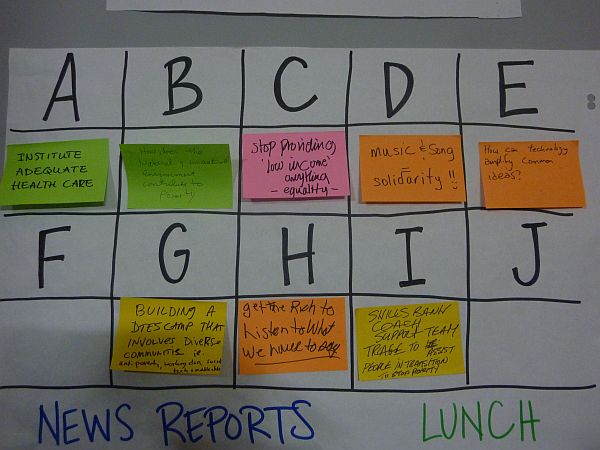 A B C D E
INSTITUTE
ADEQUATE
HEALTH CARE
How does the
National &
environment
contribute to
Poverty
Stop Providing
'low income'
anything
- equality -
music & Song
=
solidarity !!
How can technology
amplify common
ideas?
F G H I J
BUILDING A
DTES CAMP THAT
INVOLVES DIVERSE
COMMUNITIES ie.
anti-poverty, working class, social
get the Rich to
Listen to What
We have to Say
SKILLS BANK
COACH
SUPPORT TEAM
TRIAGE TO
ASSIST
PEOPLE IN TRANSITION
TO STOP POVERTY
NEWS REPORTS LUNCH